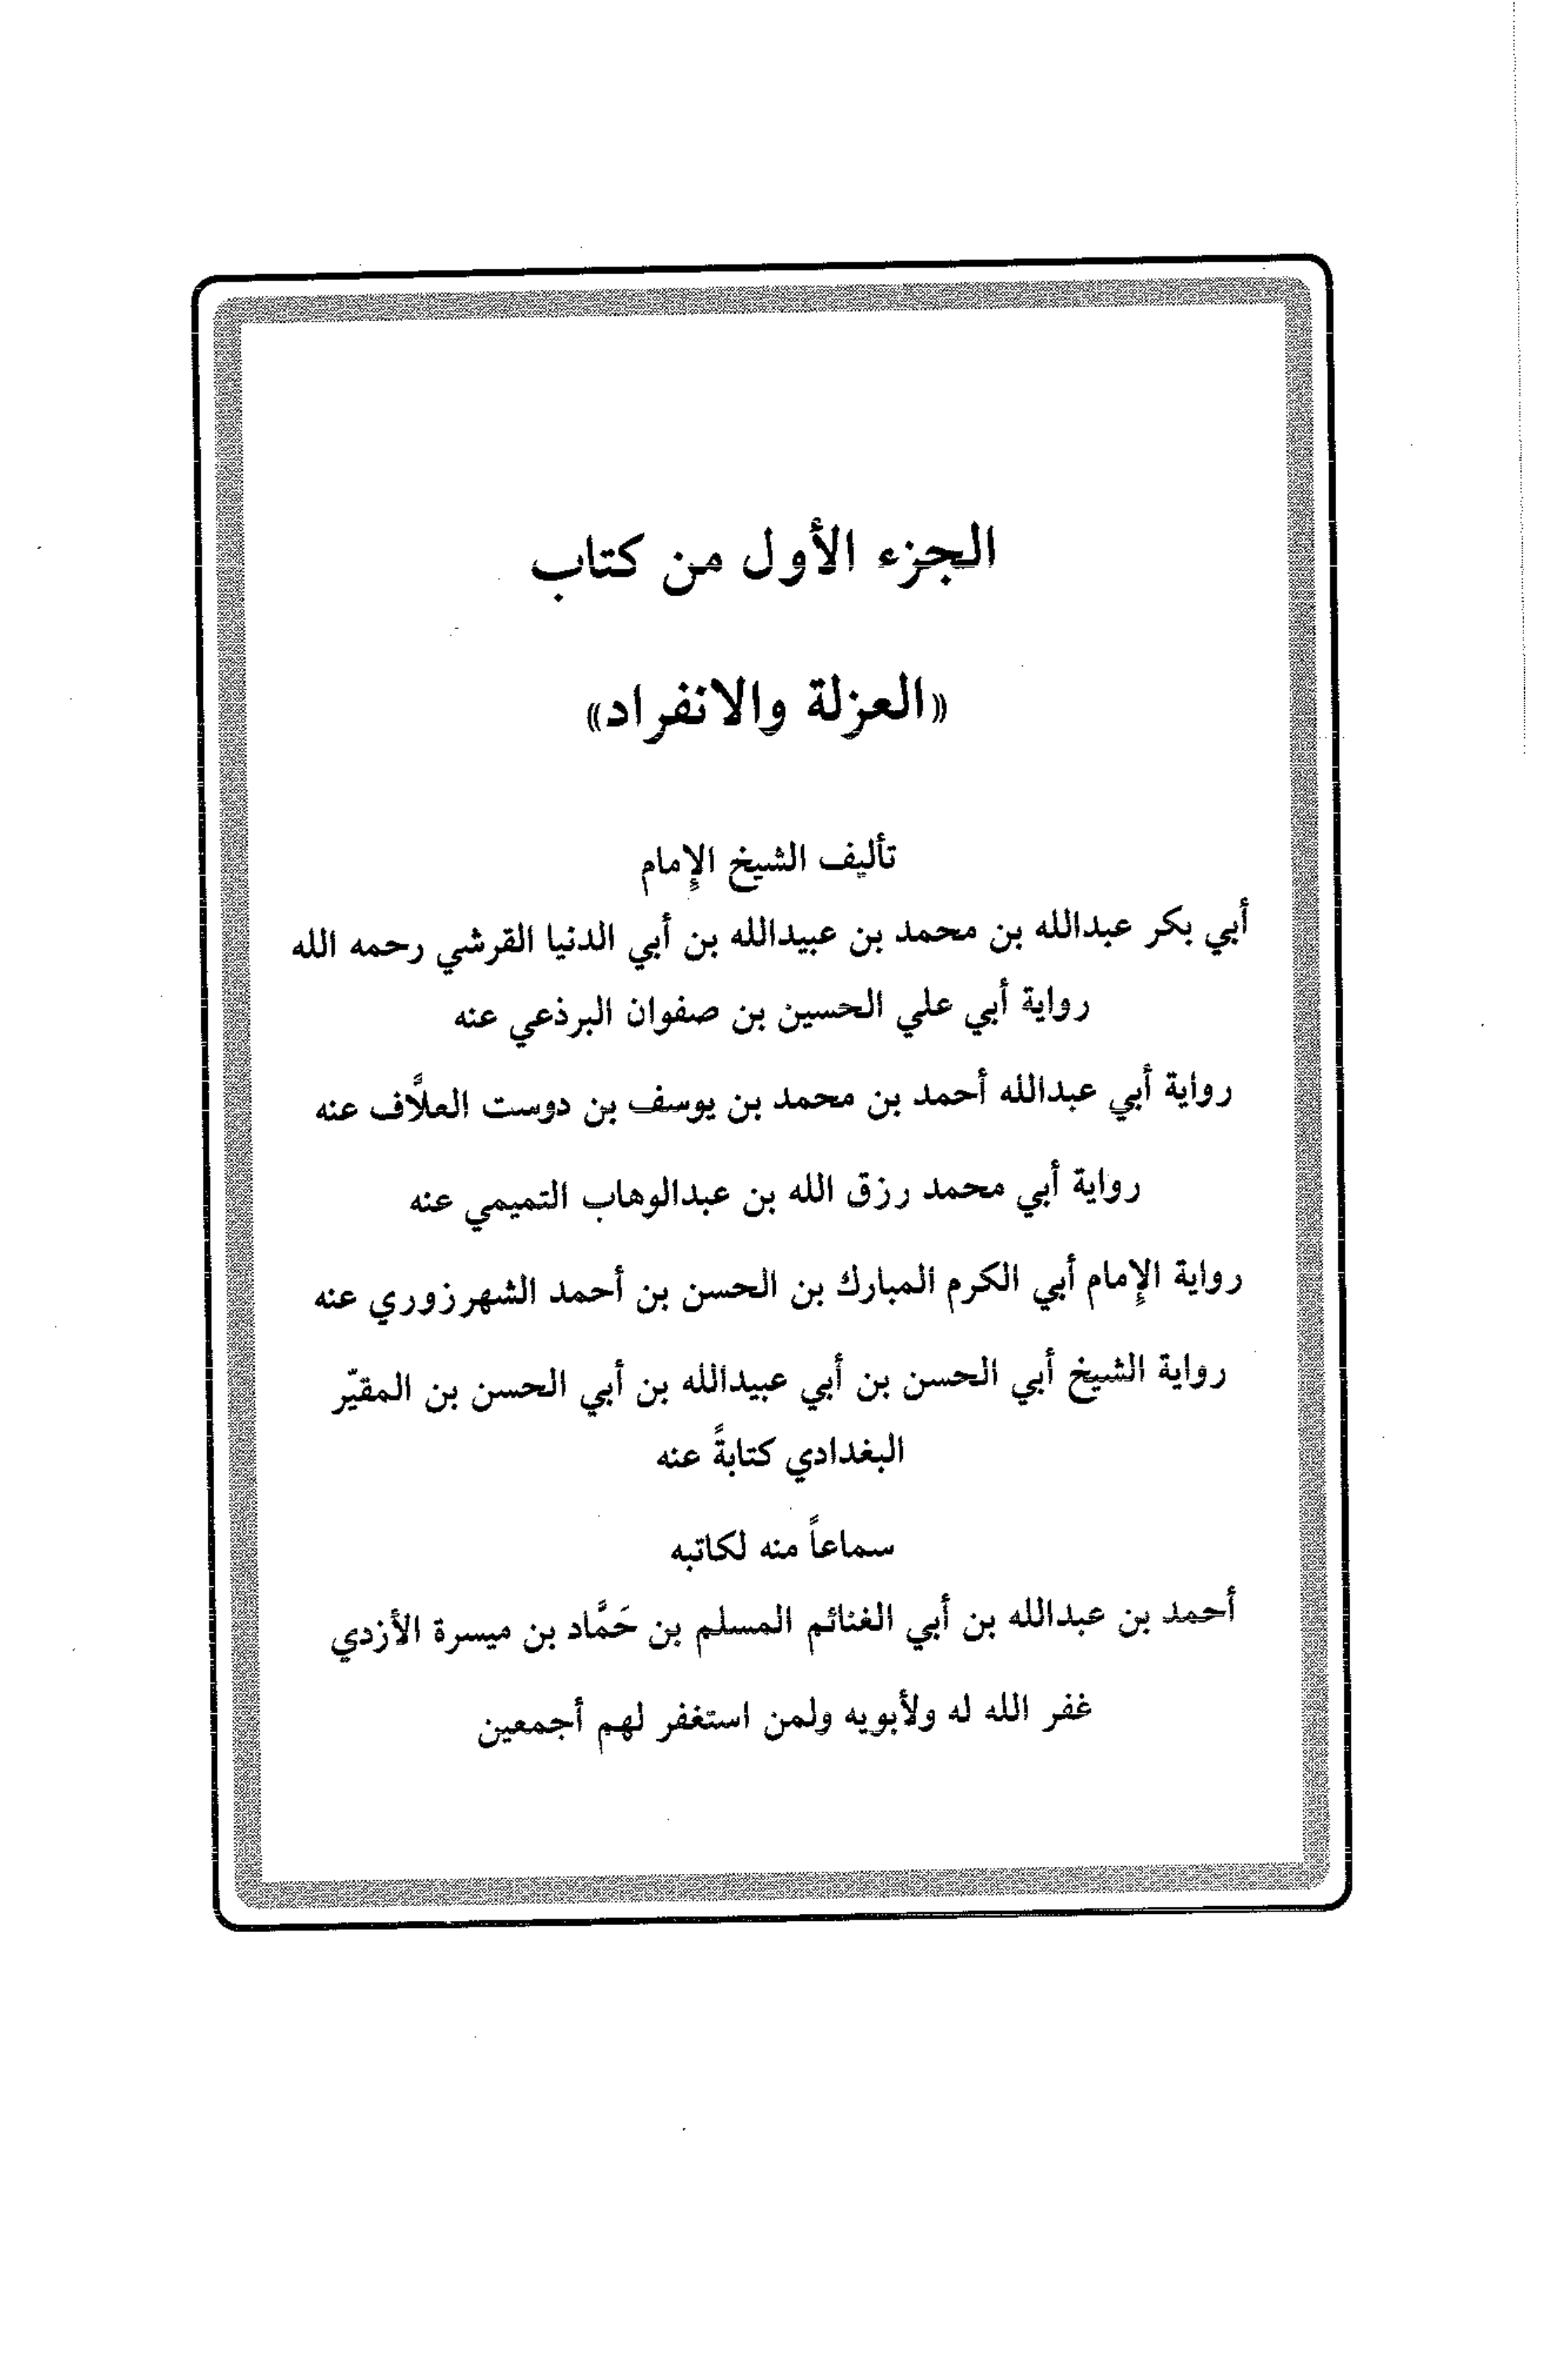 الجزء الأول من كتاب
«العزلة والانفراد»
تأليف الشيخ الإمام
أبي بكر عبدالله بن محمد بن عبيدالله بن أبي الدنيا القرشي رحمه الله
رواية أبي علي الحسين بن صفوان البرذعي عنه
رواية أبي عبدالله أحمد بن محمد بن يوسف بن دوست العلاَّف عنه
رواية أبي محمد رزق الله بن عبدالوهاب التميمي عنه
رواية الإمام أبي الكرم المبارك بن الحسن بن أحمد الشهرزوري عنه
رواية الشيخ أبي الحسن بن أبي عبيدالله بن أبي الحسن بن المقيّر
البغدادي كتابةً عنه
سماعاً منه لكاتبه
أحمد بن عبدالله بن أبي الغنائم المسلم بن حَمَّاد بن ميسرة الأزدي
غفر الله له ولأبويه ولمن استغفر لهم أجمعين